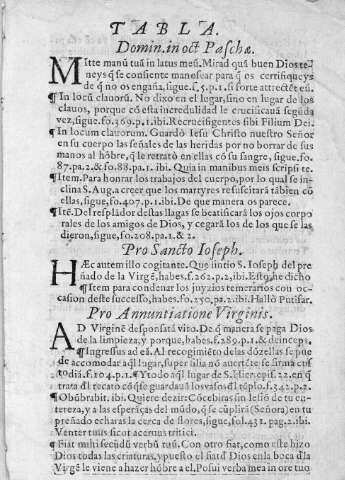 TABLA.
Domin. in oct Paschæ.
MItte manũ tuã in latus meũ. Mirad quã buen Dios te-
neys q̃ se consiente manosear para q̃ os certifiqueys
de q̃ no os engaña, sigue. f. 5. p. 1. si forte attrectẽt eũ.
¶ In locũ clauorũ. No dixo en el lugar, sino en lugar de los
clauos, porque cõ esta incredulidad le crucificauã segũda
vez, sigue. fo. 369. p. 1. ibi. Rucrucifigentes sibi Filium Dei.
¶ In locum clauorum. Guardò Iesu Christo nuestro Señor
en su cuerpo las señales de las heridas por no borrar de sus
manos al hõbre, q̃ le retratò en ellas cõ su sangre, sigue. fo.
87. pa. 2. & fo. 88. pa. 1. ibi. Quia in manibus meis scripsi te.
¶ Item. Para honrar los trabajos del cuerpo, por lo qual se in-
clina S. Aug. a creer que los martyres resuscitarã tãbien cõ
ellas, sigue. fo. 407. p. 1. ibi. De que manera os parece.
¶ Itẽ. Del resplãdor destas llagas se beatificarã los ojos corpo
rales de los amigos de Dios, y cegarã los de los que se las
dieron, sigue, fo. 208. pa. 1. & 2.
Pro Sancto Ioseph.
HÆc autem illo cogitante. Que sintio S. Ioseph del pre
ñado de la Virgẽ, habes. f. 262. p. 2. ibi. Esto, he dicho
¶ Item para condenar los juyzios temerarios con oc-
casion deste successo, habes. fo. 250, pa. 2. ibi. Hallò Putifar.
Pro Annuntiatione Virginis.
AD Virginẽ desponsatã viro. De q̃ manera se paga Dios
de la limpieza, y porque, habes. f. 289. p. 1. & deinceps.
¶ Ingressus ad eã. Al recogimiẽto de las dõzellas se pue
de accomodar aq̃l lugar, super filia nõ auertẽte se firma cus
todiã. f. 104. p. 1. ¶ Y todo aq̃l lugar de S. Hier. epist. 22. en q̃
trata dl recato cõ q̃ se guardauã los vasos dl tẽplo. f. 342. p. 2.
¶ Obũbrabit. ibi. Quiere dezir: Cõcebiras sin lesiõ de tu en-
tereza, y a las esperãças del mũdo, q̃ se cũplirã (Señora) en tu
preñado echaras la cerca de flores, sigue, fol. 431. pag. 2. ibi.
Venter tuus sicut aceruus tritici.
¶ Fiat mihi secũdũ verbũ tuũ. Con otro fiat, como este hizo
Dios todas las criaturas, y puesto el fiat d Dios en la boca d la
Virgẽ le viene a hazer hõbre a el. Posui verba mea in ore tuo